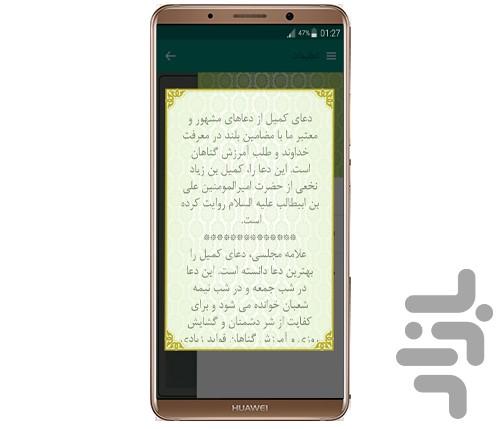 47% 01:27
تنظیمات
دعای کمیل از دعاهای مشهور و
معتبر ما با مضامین بلند در معرفت
خداوند و طلب آمرزش گناهان
است. این دعا را، کمیل بن زیاد
نخعی از حضرت امیرالمومنین علی
بن ابیطالب علیه السلام روایت کرده
است.
*************
علامه مجلسی، دعای کمیل را
بهترین دعا دانسته است. این دعا
در شب جمعه و در شب نیمه
شعبان خوانده می شود و برای
کفایت از شر دشمنان و گشایش
روزی و آمرزش گناهان فواید زیادی
HUAWEI
بازار